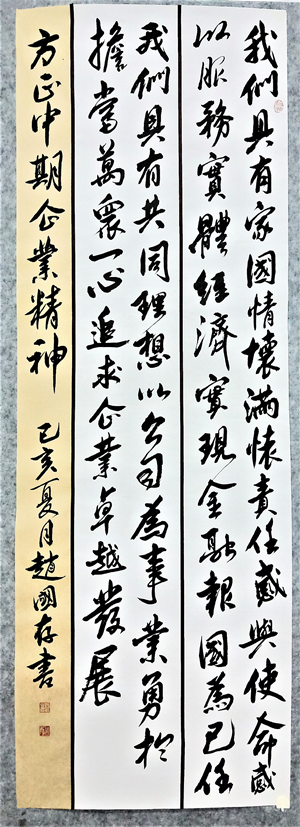 我們具有家國情壞滿懐責任感與使命感
以服務實體經濟實現金融報國為己任
我們具有共同理想以公司為事業勇於
擔當萬眾一心追求企業卓越發展
方正中期企業精神
己亥夏月趙國存書